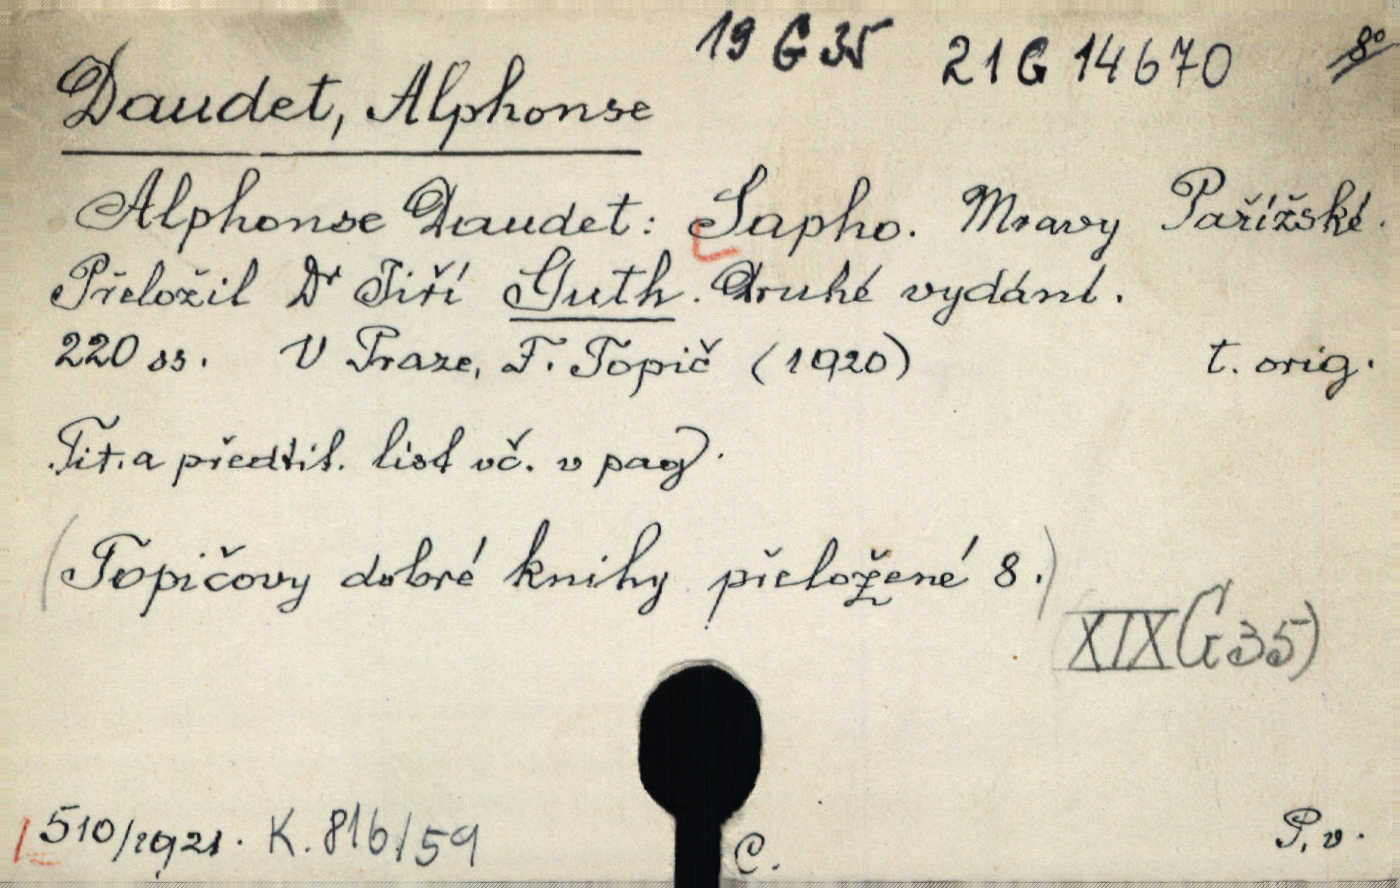 19 G 35 21 G 14670 8°
Daudet, Alphonse
Alphonse Daudet: Sapho. Mravy Pařížské.
Přeložil Dr Jiří Guth. Druhé vydání.
220 ss. V Praze, F. Topič (1920) t. orig.
Tit. a předtit. list vč. v pag.
(Topičovy dobré knihy přeložené 8.)
XIX G 35)
510/1921. K. 816/59 C. P. v.